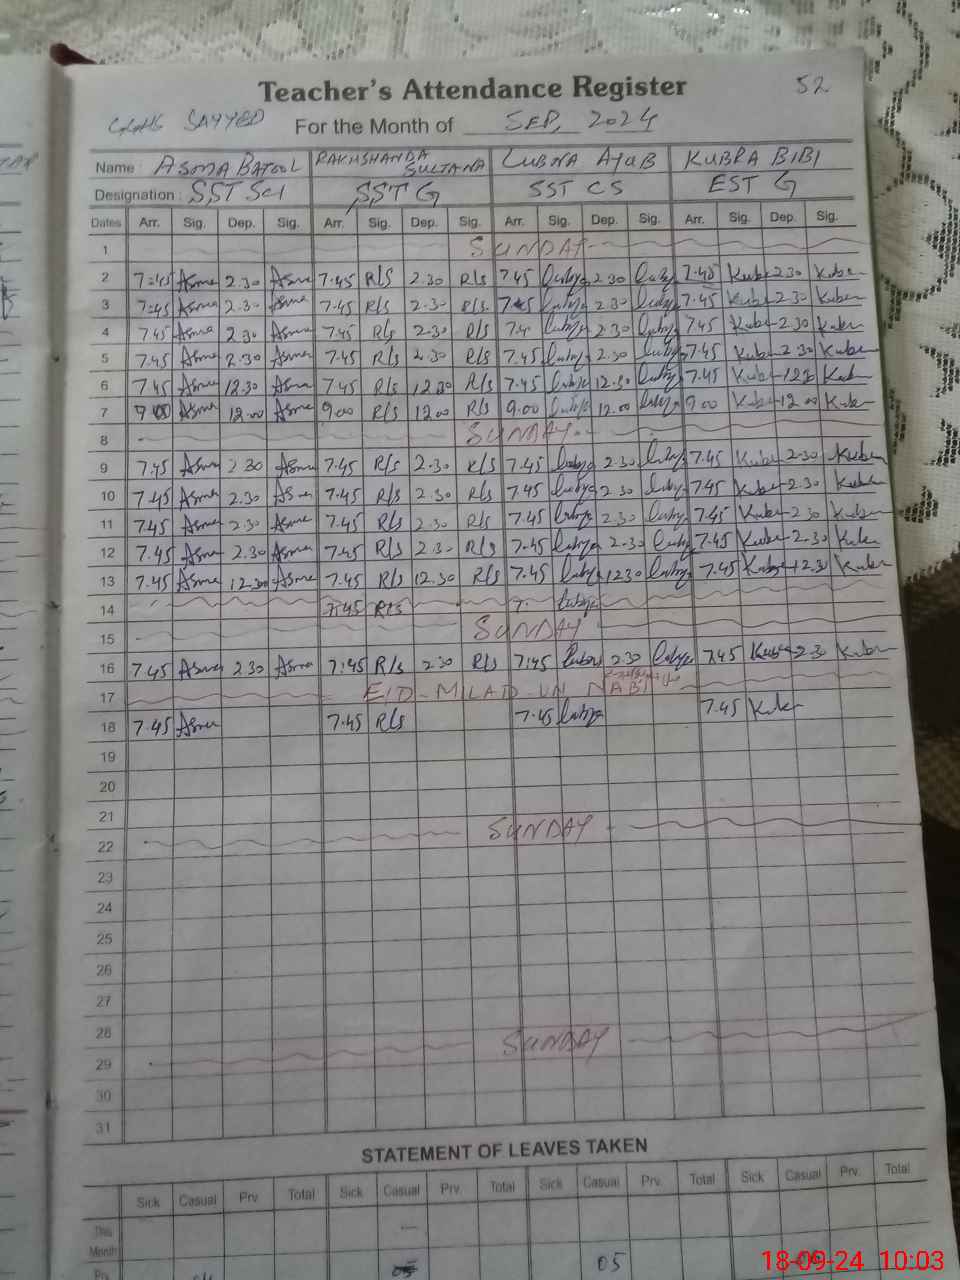 Teacher's Attendance Register
52
GGHS SAYYED For the Month of SEP, 2024
Name : ASMA BATOOL RAKHSHANDA SULTANA LUBNA AYUB KUBRA BIBI
Designation : SST Sci SST G SST CS EST G
Dates Arr. Sig. Dep. Sig. Arr. Sig. Dep. Sig. Arr. Sig. Dep. Sig. Arr. Sig. Dep. Sig.
1 SUNDAY
2 7:45 Asma 2.30 Asma 7.45 R/S 2.30 R/S 7.45 Lubna 2.30 Lubna 7.45 Kubra 2.30 Kubra
3 7:45 Asma 2.30 Asma 7.45 R/S 2.30 R/S. 7.45 Lubna 2.30 Lubna 7.45 Kubra 2.30 Kubra
4 7.45 Asma 2.30 Asma 7.45 R/S 2.30 R/S 7.4 Lubna 2.30 Lubna 7.45 Kubra 2.30 Kubra
5 7.45 Asma 2.30 Asma 7.45 R/S 2.30 R/S 7.45 Lubna 2.30 Lubna 7.45 Kubra 2.30 Kubra
6 7.45 Asma 12.30 Asma 7.45 R/S 12.30 R/S 7.45 Lubna 12.30 Lubna 7.45 Kubra Kubra
7 9.00 Asma 12.00 Asma 9.00 R/S 12.00 R/S 9.00 Lubna 12.00 Lubna 9.00 Kubra 12.00 Kubra
8 SUNDAY
9 7.45 Asma 2.30 Asma 7.45 R/S 2.30 R/S 7.45 Lubna 2.30 Lubna 7.45 Kubra 2.30 Kubra
10 7.45 Asma 2.30 Asma 7.45 R/S 2.30 R/S 7.45 Lubna 2.30 Lubna 7.45 Kubra 2.30 Kubra
11 7.45 Asma 2.30 Asma 7.45 R/S 2.30 R/S 7.45 Lubna 2.30 Lubna 7.45 Kubra 2.30 Kubra
12 7.45 Asma 2.30 Asma 7.45 R/S 2.30 R/S 7.45 Lubna 2.30 Lubna 7.45 Kubra 2.30 Kubra
13 7.45 Asma 12.30 Asma 7.45 R/S 12.30 R/S 7.45 Lubna 1230 Lubna 7.45 Kubra 12.30 Kubra
14 7.45 R/S 7. Lubna
15 SUNDAY
16 7.45 Asma 2.30 Asma 7:45 R/S 2.30 R/S 7:45 Lubna 2.30 Lubna 7.45 Kubra 2.30 Kubra
17 EID-MILAD-UN NABI
18 7.45 Asma 7.45 R/S 7.45 Lubna 7.45 Kubra
19
20
21
SUNDAY
22
23
24
25
26
27
28
SUNDAY
29
30
31
STATEMENT OF LEAVES TAKEN
Sick Casual Prv. Total Sick Casual Prv. Total Sick Casual Prv. Total Sick Casual Prv. Total
This
Month
05
18-09-24 10:03